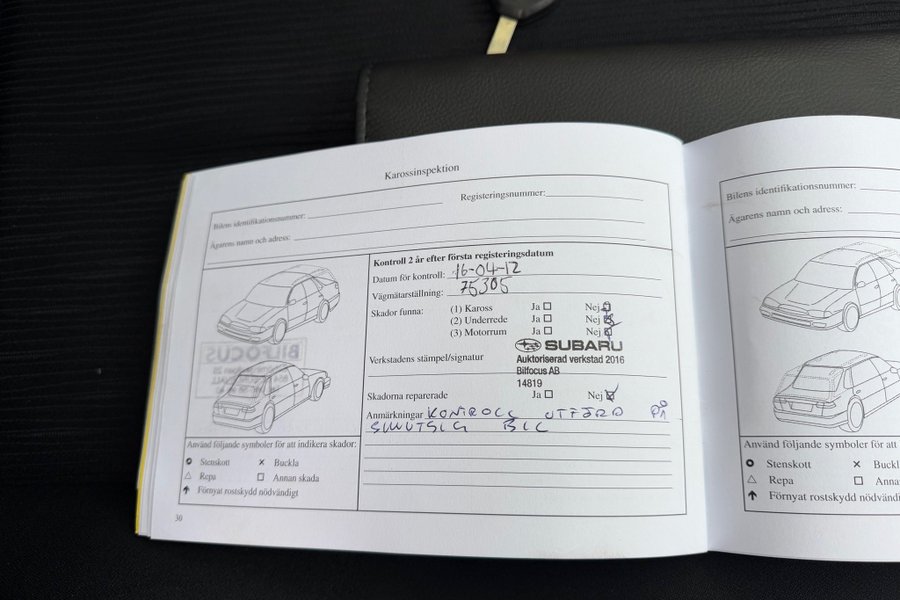 Karossinspektion
Bilens identifikationsnummer:
Registeringsnummer:
Ägarens namn och adress:
Kontroll 2 år efter första registeringsdatum
Datum för kontroll: 16-04-12
Vägmätarställning: 75305
Skador funna: (1) Kaross Ja Nej
(2) Underrede Ja Nej
(3) Motorrum Ja Nej
Verkstadens stämpel/signatur
SUBARU
Auktoriserad verkstad 2016
Bilfocus AB
14819
Skadorna reparerade Ja Nej
Anmärkningar KONTROLL UTFÖRD PÅ
SMUTSIG BIL
BILFOCUS
Använd följande symboler för att indikera skador:
Stenskott × Buckla
Repa Annan skada
Förnyat rostskydd nödvändigt
30
Bilens identifikationsnummer:
Ägarens namn och adress:
Använd följande symboler för att
Stenskott × Buckl
Repa Anna
Förnyat rostskydd nödvändi